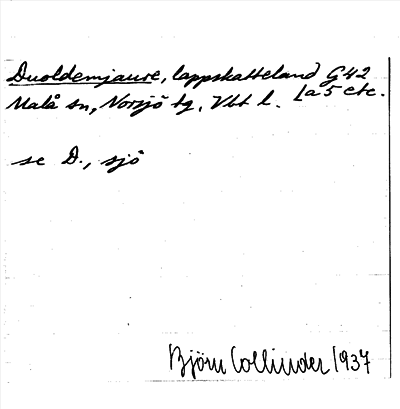 Duoldemjaure, lappskatteland G42
Malå sn, Norsjö tg, Vbt l. La5 etc.
se D., sjö
Björn Collinder 1937